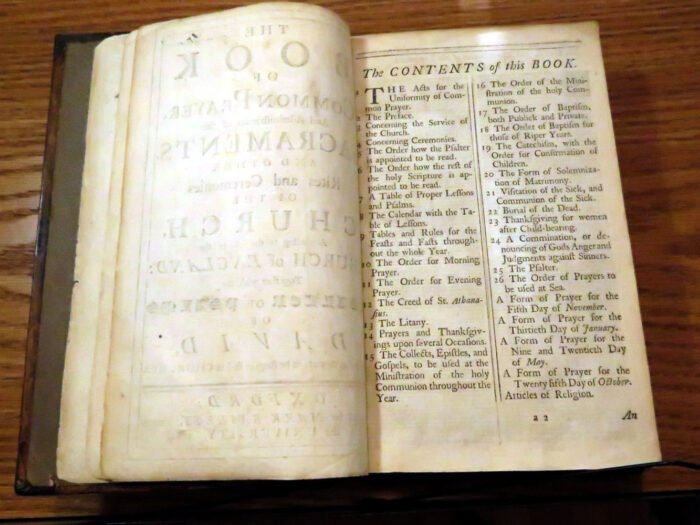 THE
BOOK
OF
COMMON PRAYER,
SACRAMENTS,
AND OTHER
Rites and Ceremonies
OF THE
CHURCH,
CHURCH of ENGLAND:
PSALTER OR PSALMS
OF
DAVID,
OXFORD:
UNIVERSITY
The CONTENTS of this BOOK.
THE Acts for the
Uniformity of Com-
mon Prayer.
2 The Preface.
3 Concerning the Service of
the Church.
4 Concerning Ceremonies.
5 The Order how the Pſalter
is appointed to be read.
6 The Order how the reſt of
the holy Scripture is ap-
pointed to be read.
7 A Table of Proper Leſſons
and Pſalms.
8 The Calendar with the Ta-
ble of Leſſons.
9 Tables and Rules for the
Feaſts and Faſts through-
out the whole Year.
10 The Order for Morning
Prayer.
11 The Order for Evening
Prayer.
12 The Creed of St. Athana-
ſius.
13 The Litany.
14 Prayers and Thankſgiv-
ings upon ſeveral Occaſions.
15 The Collects, Epiſtles, and
Goſpels, to be uſed at the
Miniſtration of the holy
Communion throughout the
Year.
16 The Order of the Mini-
ſtration of the holy Com-
munion.
17 The Order of Baptiſm,
both Publick and Private.
18 The Order of Baptiſm for
thoſe of Riper Years.
19 The Catechiſm, with the
Order for Confirmation of
Children.
20 The Form of Solemniza-
tion of Matrimony.
21 Viſitation of the Sick, and
Communion of the Sick.
22 Burial of the Dead.
23 Thankſgiving for women
after Child-bearing.
24 A Commination, or de-
nouncing of Gods Anger and
Judgments againſt Sinners.
25 The Pſalter.
26 The Order of Prayers to
be uſed at Sea.
A Form of Prayer for the
Fifth Day of November.
A Form of Prayer for the
Thirtieth Day of January.
A Form of Prayer for the
Nine and Twentieth Day
of May.
A Form of Prayer for the
Twenty fifth Day of October.
Articles of Religion.
a 2
An